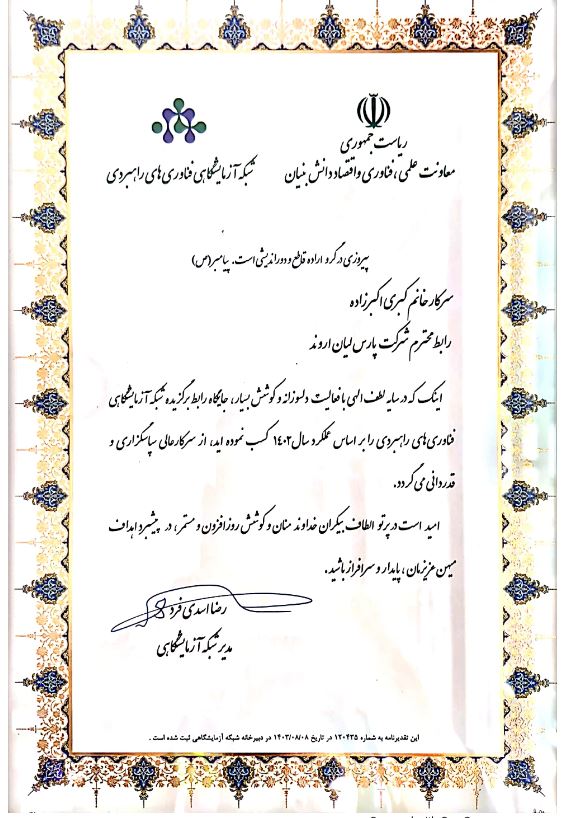 ریاست جمهوری
معاونت علمی، فناوری و اقتصاد دانش بنیان
شبکه آزمایشگاهی فناوری های راهبردی
پیروزی در گرو اراده قاطع و دوراندیشی است. پیامبر (ص)
سرکار خانم کبری اکبرزاده
رابط محترم شرکت پارس لیان اروند
اینک که در سایه لطف الهی با فعالیت دلسوزانه و کوشش بسیار، جایگاه رابط برگزیده شبکه آزمایشگاهی
فناوری های راهبردی را بر اساس عملکرد سال ۱۴۰۲ کسب نموده اید، از سرکارعالی سپاسگزاری و
قدردانی می گردد.
امید است در پرتو الطاف بیکران خداوند منان و کوشش روزافزون و مستمر، در پیشبرد اهداف
میهن عزیزمان، پایدار و سرافراز باشید.
رضا اسدی فرد
مدیر شبکه آزمایشگاهی
این تقدیرنامه به شماره ۱۲۰۴۳۵ در تاریخ ۱۴۰۳/۰۸/۰۸ در دبیرخانه شبکه آزمایشگاهی ثبت شده است.